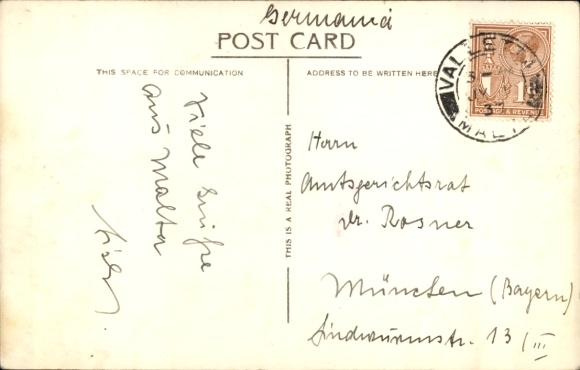 Germania
POST CARD
THIS SPACE FOR COMMUNICATION
ADDRESS TO BE WRITTEN HERE
VALLETTA
MALTA
1
POSTAGE & REVENUE
THIS IS A REAL PHOTOGRAPH
Viele Grüße
aus Malta
Herrn
Amtsgerichtsrat
Dr. Rosner
München (Bayern)
Lindwurmstr. 13/III